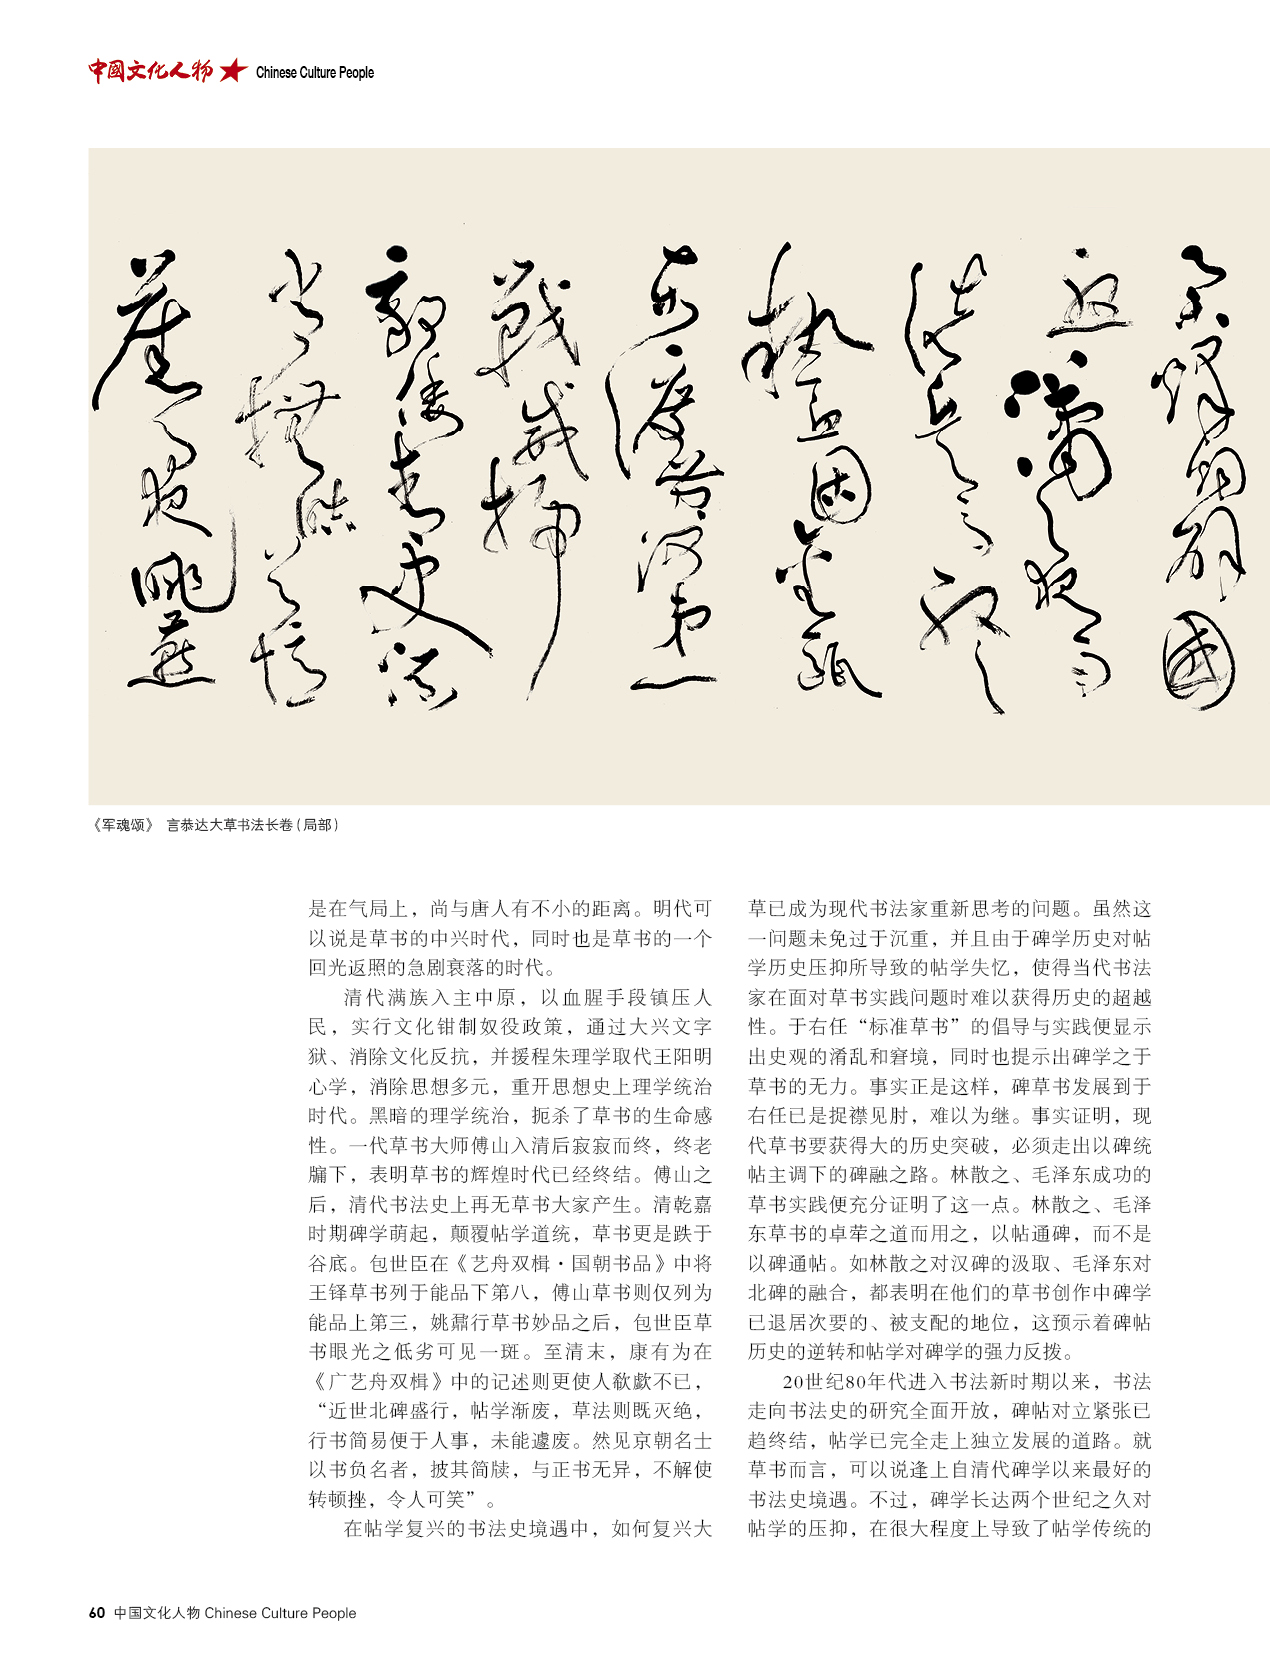 中國文化人物 Chinese Culture People
《军魂颂》 言恭达大草书法长卷(局部)
是在气局上，尚与唐人有不小的距离。明代可
以说是草书的中兴时代，同时也是草书的一个
回光返照的急剧衰落的时代。
清代满族入主中原，以血腥手段镇压人
民，实行文化钳制奴役政策，通过大兴文字
狱、消除文化反抗，并援程朱理学取代王阳明
心学，消除思想多元，重开思想史上理学统治
时代。黑暗的理学统治，扼杀了草书的生命感
性。一代草书大师傅山入清后寂寂而终，终老
牖下，表明草书的辉煌时代已经终结。傅山之
后，清代书法史上再无草书大家产生。清乾嘉
时期碑学萌起，颠覆帖学道统，草书更是跌于
谷底。包世臣在《艺舟双楫·国朝书品》中将
王铎草书列于能品下第八，傅山草书则仅列为
能品上第三，姚鼐行草书妙品之后，包世臣草
书眼光之低劣可见一斑。至清末，康有为在
《广艺舟双楫》中的记述则更使人欷歔不已，
“近世北碑盛行，帖学渐废，草法则既灭绝，
行书简易便于人事，未能遽废。然见京朝名士
以书负名者，披其简牍，与正书无异，不解使
转顿挫，令人可笑”。
在帖学复兴的书法史境遇中，如何复兴大
草已成为现代书法家重新思考的问题。虽然这
一问题未免过于沉重，并且由于碑学历史对帖
学历史压抑所导致的帖学失忆，使得当代书法
家在面对草书实践问题时难以获得历史的超越
性。于右任“标准草书”的倡导与实践便显示
出史观的淆乱和窘境，同时也提示出碑学之于
草书的无力。事实正是这样，碑草书发展到于
右任已是捉襟见肘，难以为继。事实证明，现
代草书要获得大的历史突破，必须走出以碑统
帖主调下的碑融之路。林散之、毛泽东成功的
草书实践便充分证明了这一点。林散之、毛泽
东草书的卓荦之道而用之，以帖通碑，而不是
以碑通帖。如林散之对汉碑的汲取、毛泽东对
北碑的融合，都表明在他们的草书创作中碑学
已退居次要的、被支配的地位，这预示着碑帖
历史的逆转和帖学对碑学的强力反拨。
20世纪80年代进入书法新时期以来，书法
走向书法史的研究全面开放，碑帖对立紧张已
趋终结，帖学已完全走上独立发展的道路。就
草书而言，可以说逢上自清代碑学以来最好的
书法史境遇。不过，碑学长达两个世纪之久对
帖学的压抑，在很大程度上导致了帖学传统的
60 中国文化人物 Chinese Culture People